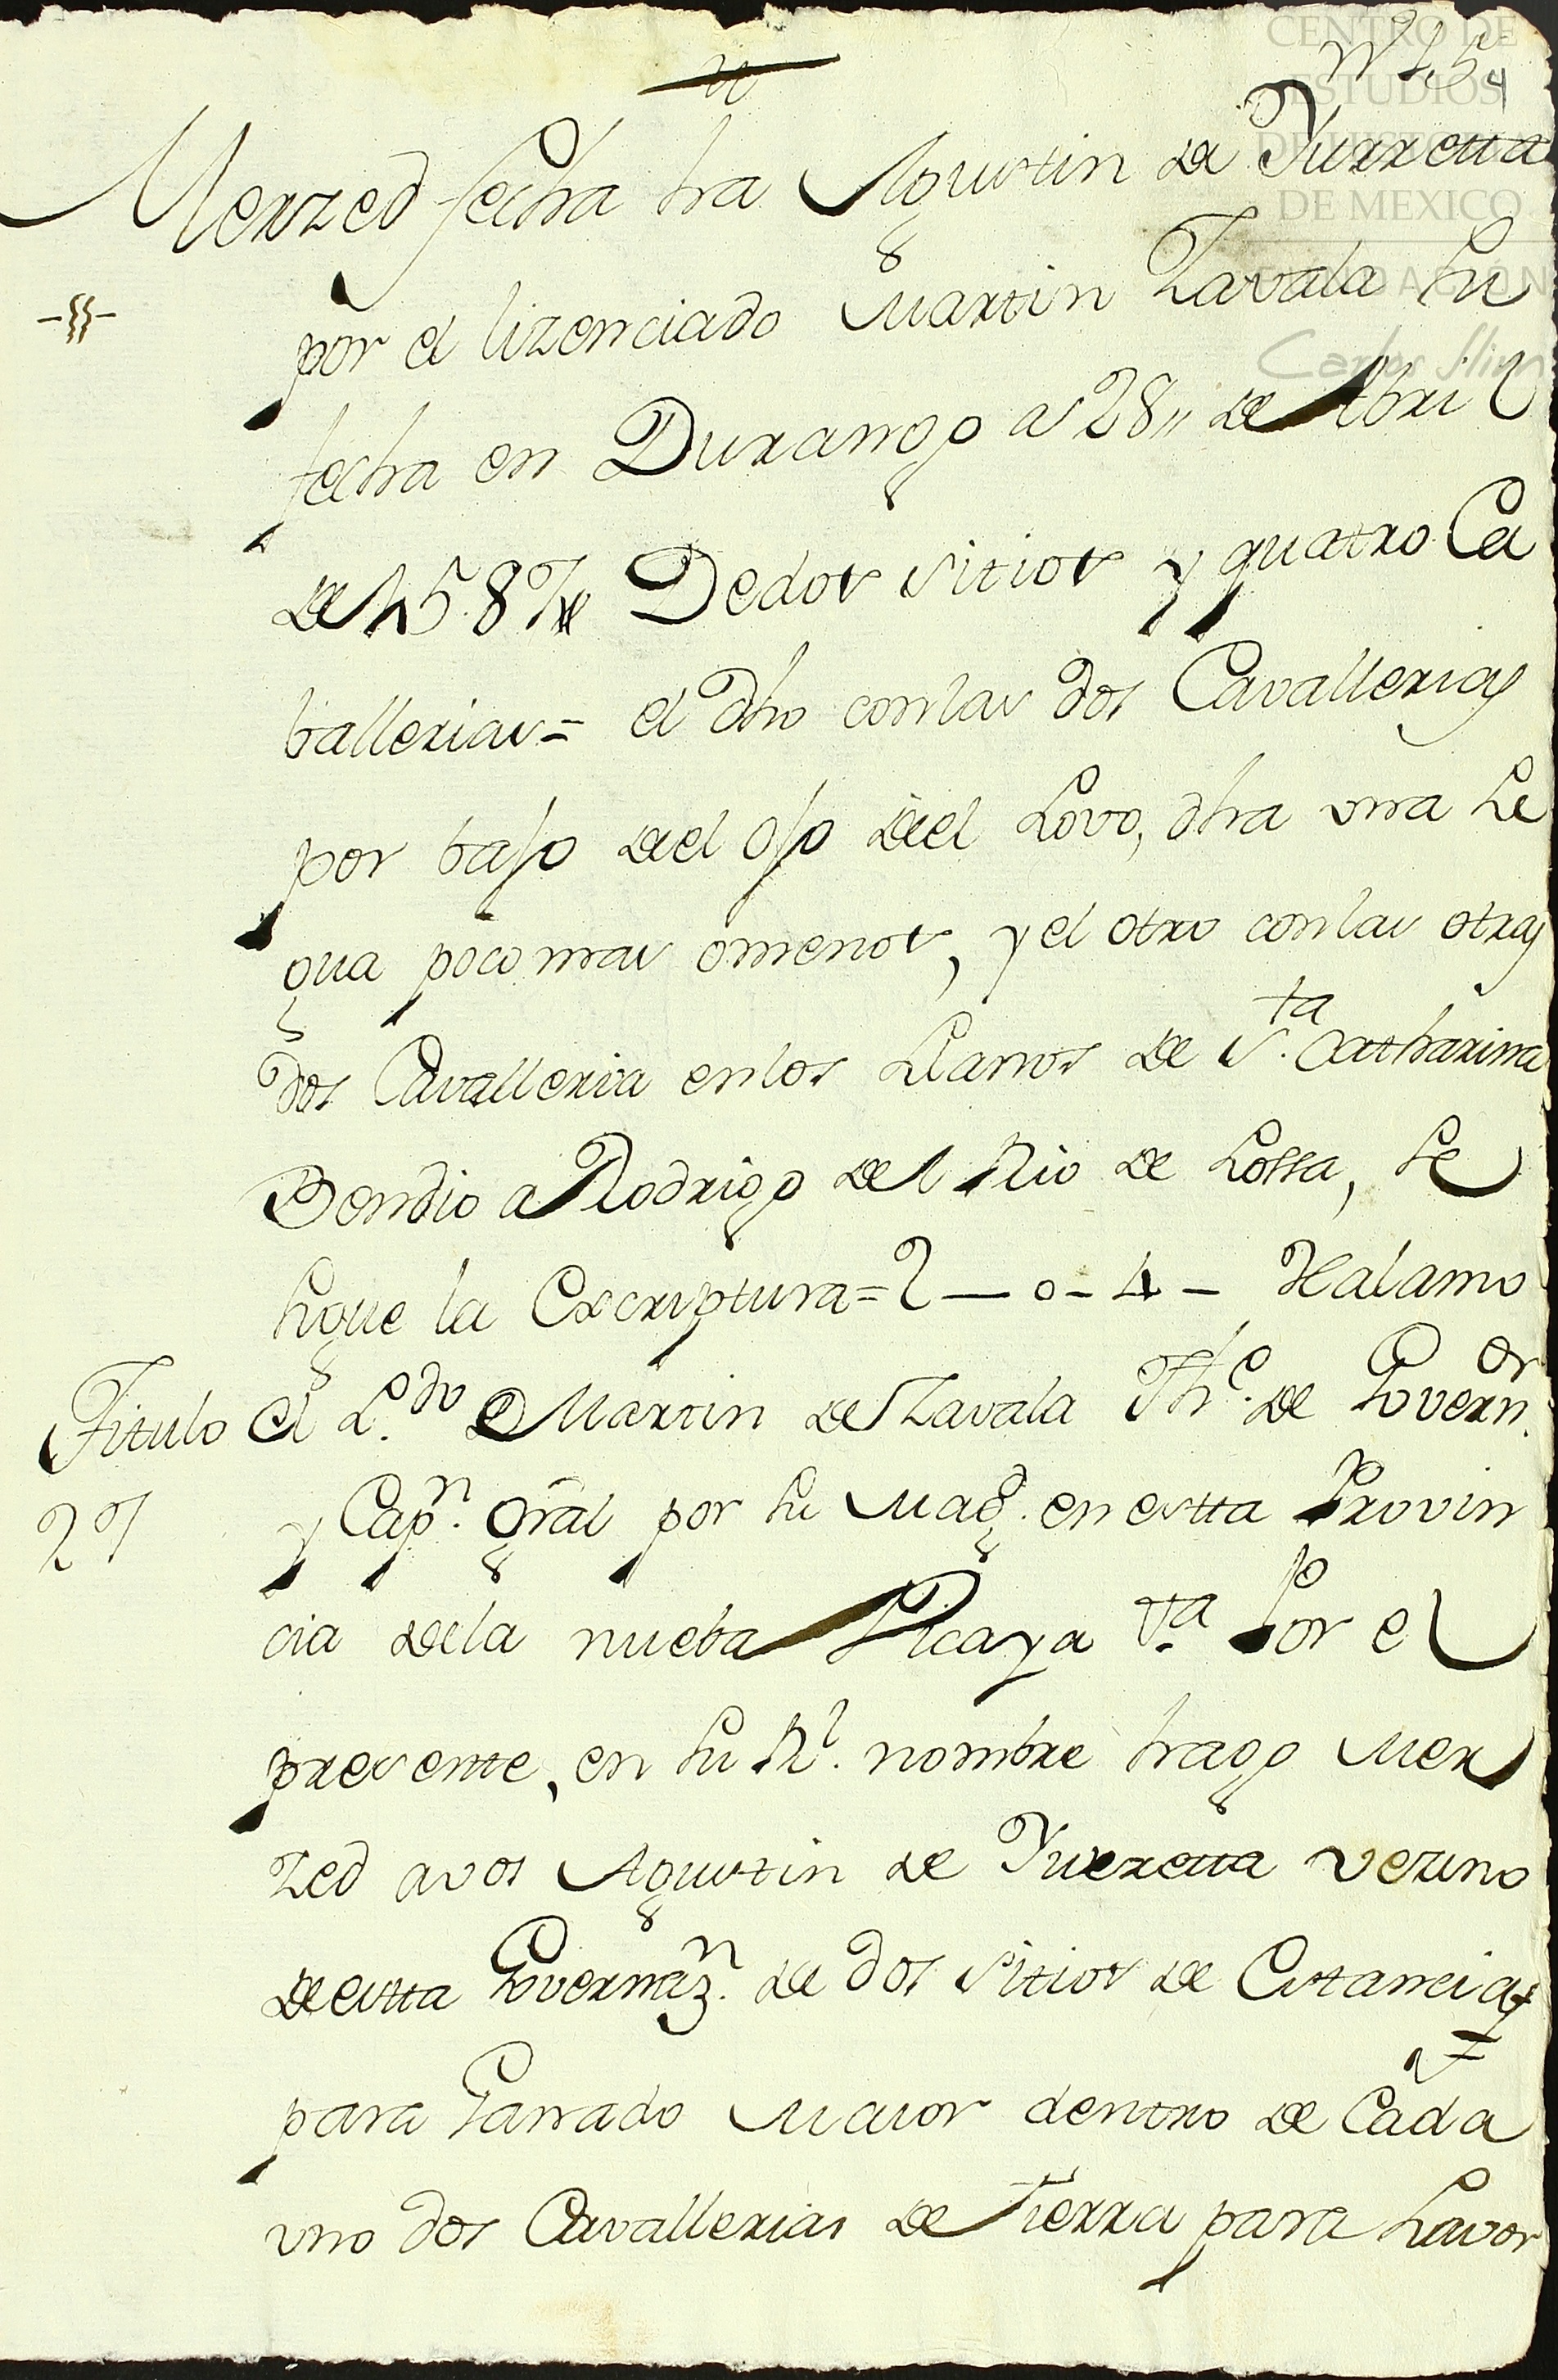 CENTRO DE
ESTUDIOS
DE HISTORIA
DE MEXICO
FUNDACIÓN
Carlos Slim
4
Merzed fecha ha Agustin de Yurretta
por el lizenciado Martin Zavala Su
fecha en Durango a 28,, de Abril
de 1587 De dos sitios y quatro Ca
ballerias = el dho con las dos Cavallerias
por bajo del ojo del Lovo, dha una Le
gua poco mas o menos, y el otro con las otras
dos Cavalleria en los Llanos de S.ta Catharina
Bendio a Rodrigo del Rio de Lossa, Se
Sigue la Escriptura = 2 — o - 4 - Halamo
Titulo El L.do Martin de Zavala Thе. de Govern.or
2º y Cap.n Gral por Su Mag.d en estta Provin
cia de la nueba Vicaya V.ta Por el
presente, en Su Rl. nombre hago Mer
zed a vos Agustin de Yuerretta vezino
de estta Governaz.n de dos sitios de Estancias
para Ganado Maior dentro de Cada
uno dos Cavallerias de Tierra para Lavor